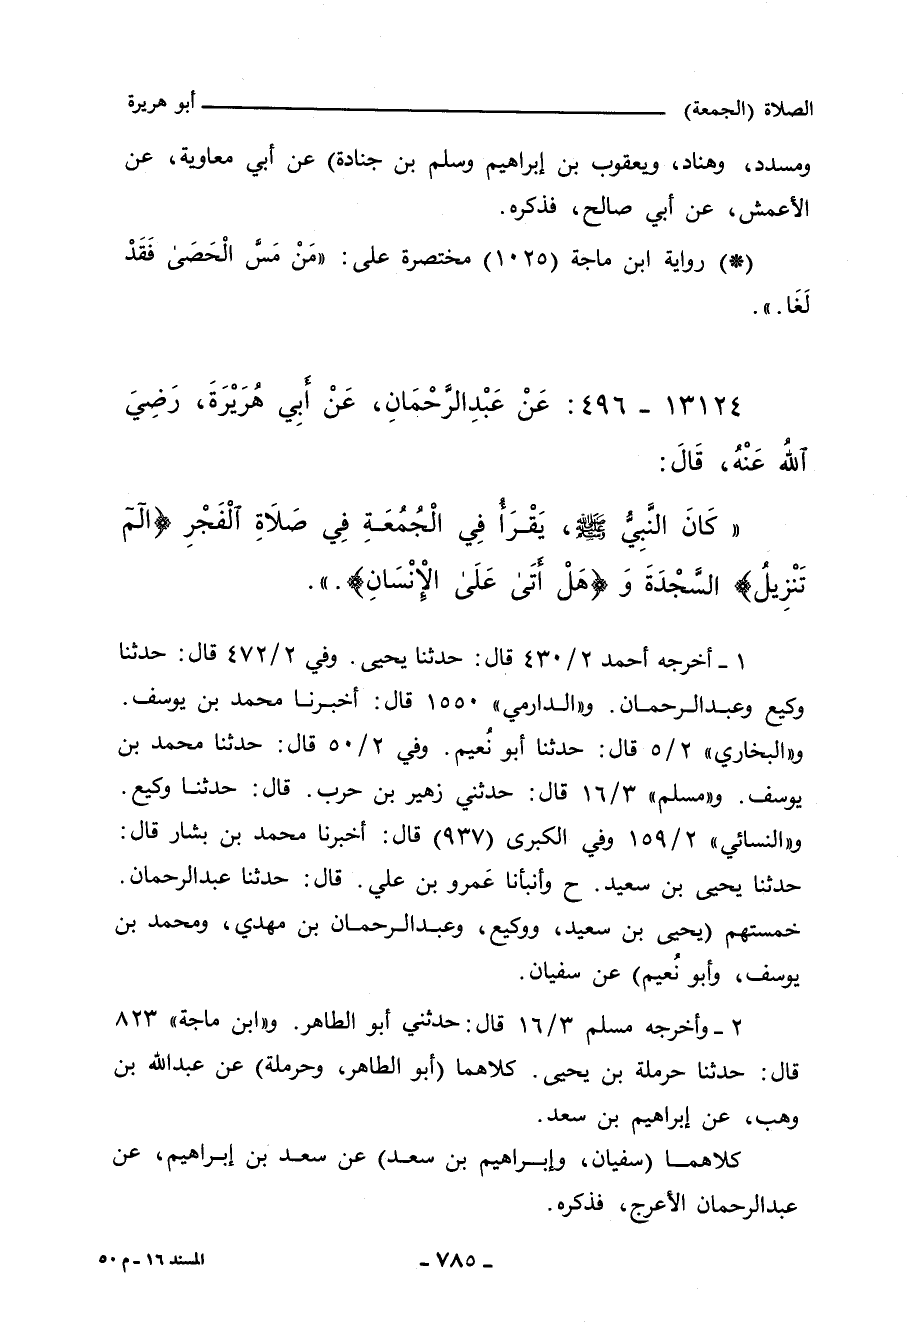 الصلاة (الجمعة) أبو هريرة
ومسدد، وهناد، ويعقوب بن إبراهيم وسلم بن جنادة) عن أبي معاوية، عن
الأعمش، عن أبي صالح، فذكره.
(*) رواية ابن ماجة (١٠٢٥) مختصرة على: «مَنْ مَسَّ الْحَصَىٰ فَقَدْ
لَغَا.».
١٣١٢٤ - ٤٩٦: عَنْ عَبْدِالرَّحْمَانِ، عَنْ أَبِي هُرَيْرَةَ، رَضِيَ
ٱللهُ عَنْهُ، قَالَ:
« كَانَ النَّبِيُّ ﷺ، يَقْرَأُ فِي الْجُمُعَةِ فِي صَلَاةِ ٱلْفَجْرِ ﴿الٓمٓ
تَنْزِيلُ﴾ السَّجْدَةَ وَ ﴿هَلْ أَتَىٰ عَلَىٰ الْإِنْسَانِ﴾.».
١ - أخرجه أحمد ٤٣٠/٢ قال: حدثنا يحيى. وفي ٤٧٢/٢ قال: حدثنا
وكيع وعبدالرحمان. و«الدارمي» ١٥٥٠ قال: أخبرنا محمد بن يوسف.
و«البخاري» ٥/٢ قال: حدثنا أبو نُعيم. وفي ٥٠/٢ قال: حدثنا محمد بن
يوسف. و«مسلم» ١٦/٣ قال: حدثني زهير بن حرب. قال: حدثنا وكيع.
و«النسائي» ١٥٩/٢ وفي الكبرى (٩٣٧) قال: أخبرنا محمد بن بشار قال:
حدثنا يحيى بن سعيد. ح وأنبأنا عَمرو بن علي. قال: حدثنا عبدالرحمان.
خمستهم (يحيى بن سعيد، ووكيع، وعبدالرحمان بن مهدي، ومحمد بن
يوسف، وأبو نُعيم) عن سفيان.
٢ - وأخرجه مسلم ١٦/٣ قال: حدثني أبو الطاهر. و«ابن ماجة» ٨٢٣
قال: حدثنا حرملة بن يحيى. كلاهما (أبو الطاهر، وحرملة) عن عبدالله بن
وهب، عن إبراهيم بن سعد.
كلاهما (سفيان، وإبراهيم بن سعد) عن سعد بن إبراهيم، عن
عبدالرحمان الأعرج، فذكره.
- ٧٨٥ -
المسند ١٦ - م ٥٠